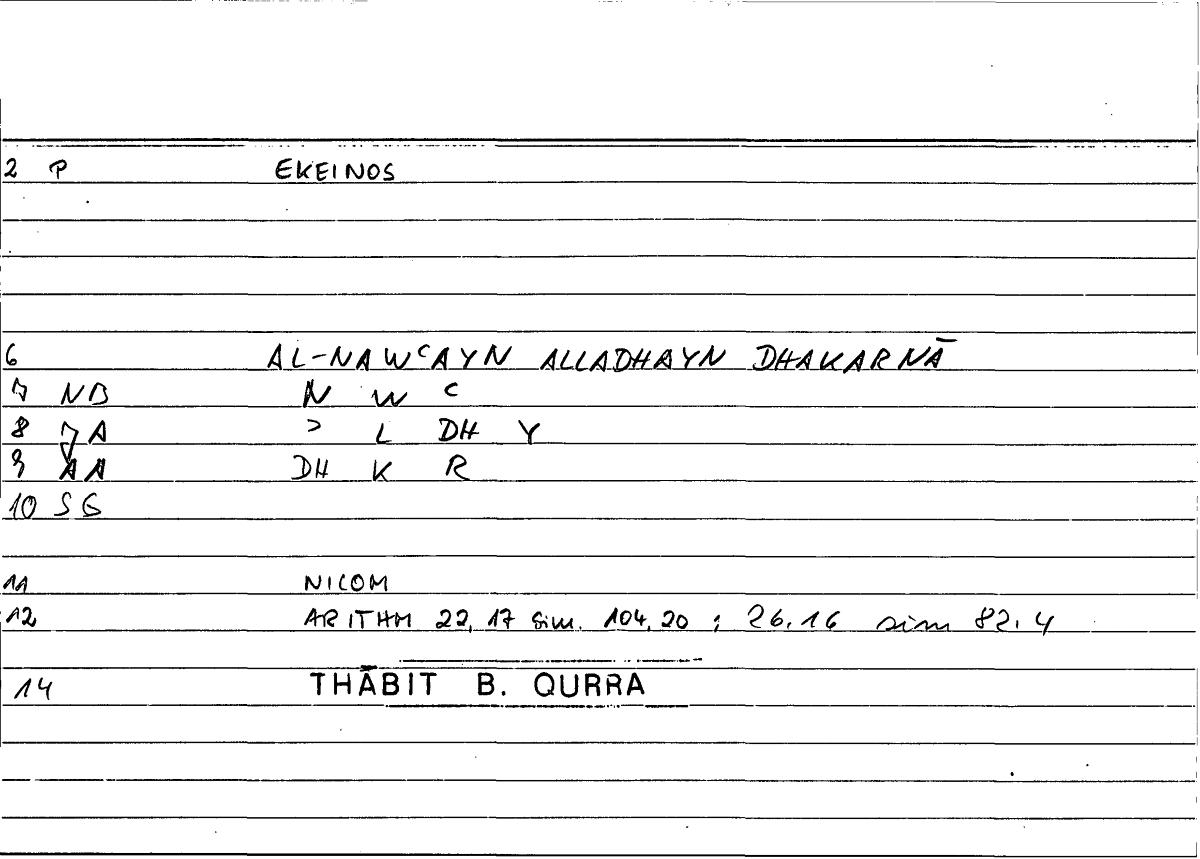 2 P EKEINOS
6 AL-NAWᶜAYN ALLADHAYN DHAKARNĀ
7 NB N W ᶜ
8 JA ʾ L DH Y
9 AA DH K R
10 SG
11 NICOM
12 ARITHM 22,17 sim. 104,20 ; 26.16 sim 82.4
14 THĀBIT B. QURRA